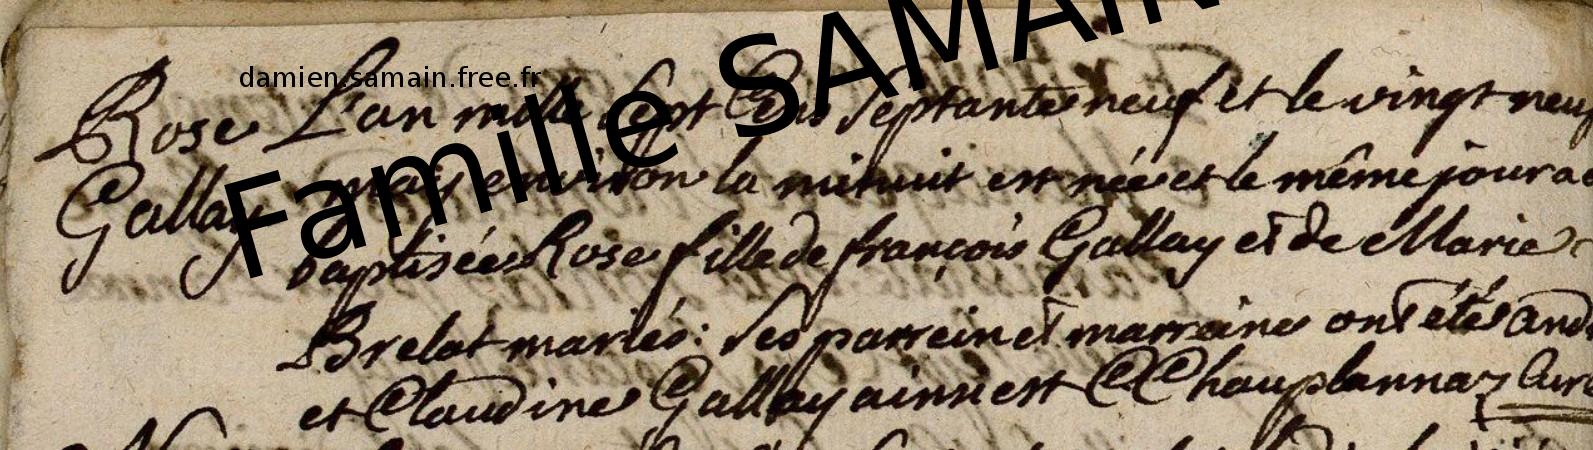 damien.samain.free.fr
Famille SAMAIN
Rose L'an mille sept Cens septante neuf et le vingt neuf
Gallay may environ la minuit est née et le même jour a
baptisée Rose fille de françois Gallay et de Marie
Brelat mariés: ses parrein et marraine ont étés And
et Claudine Gallay ainsi est Chauplannaz Cur